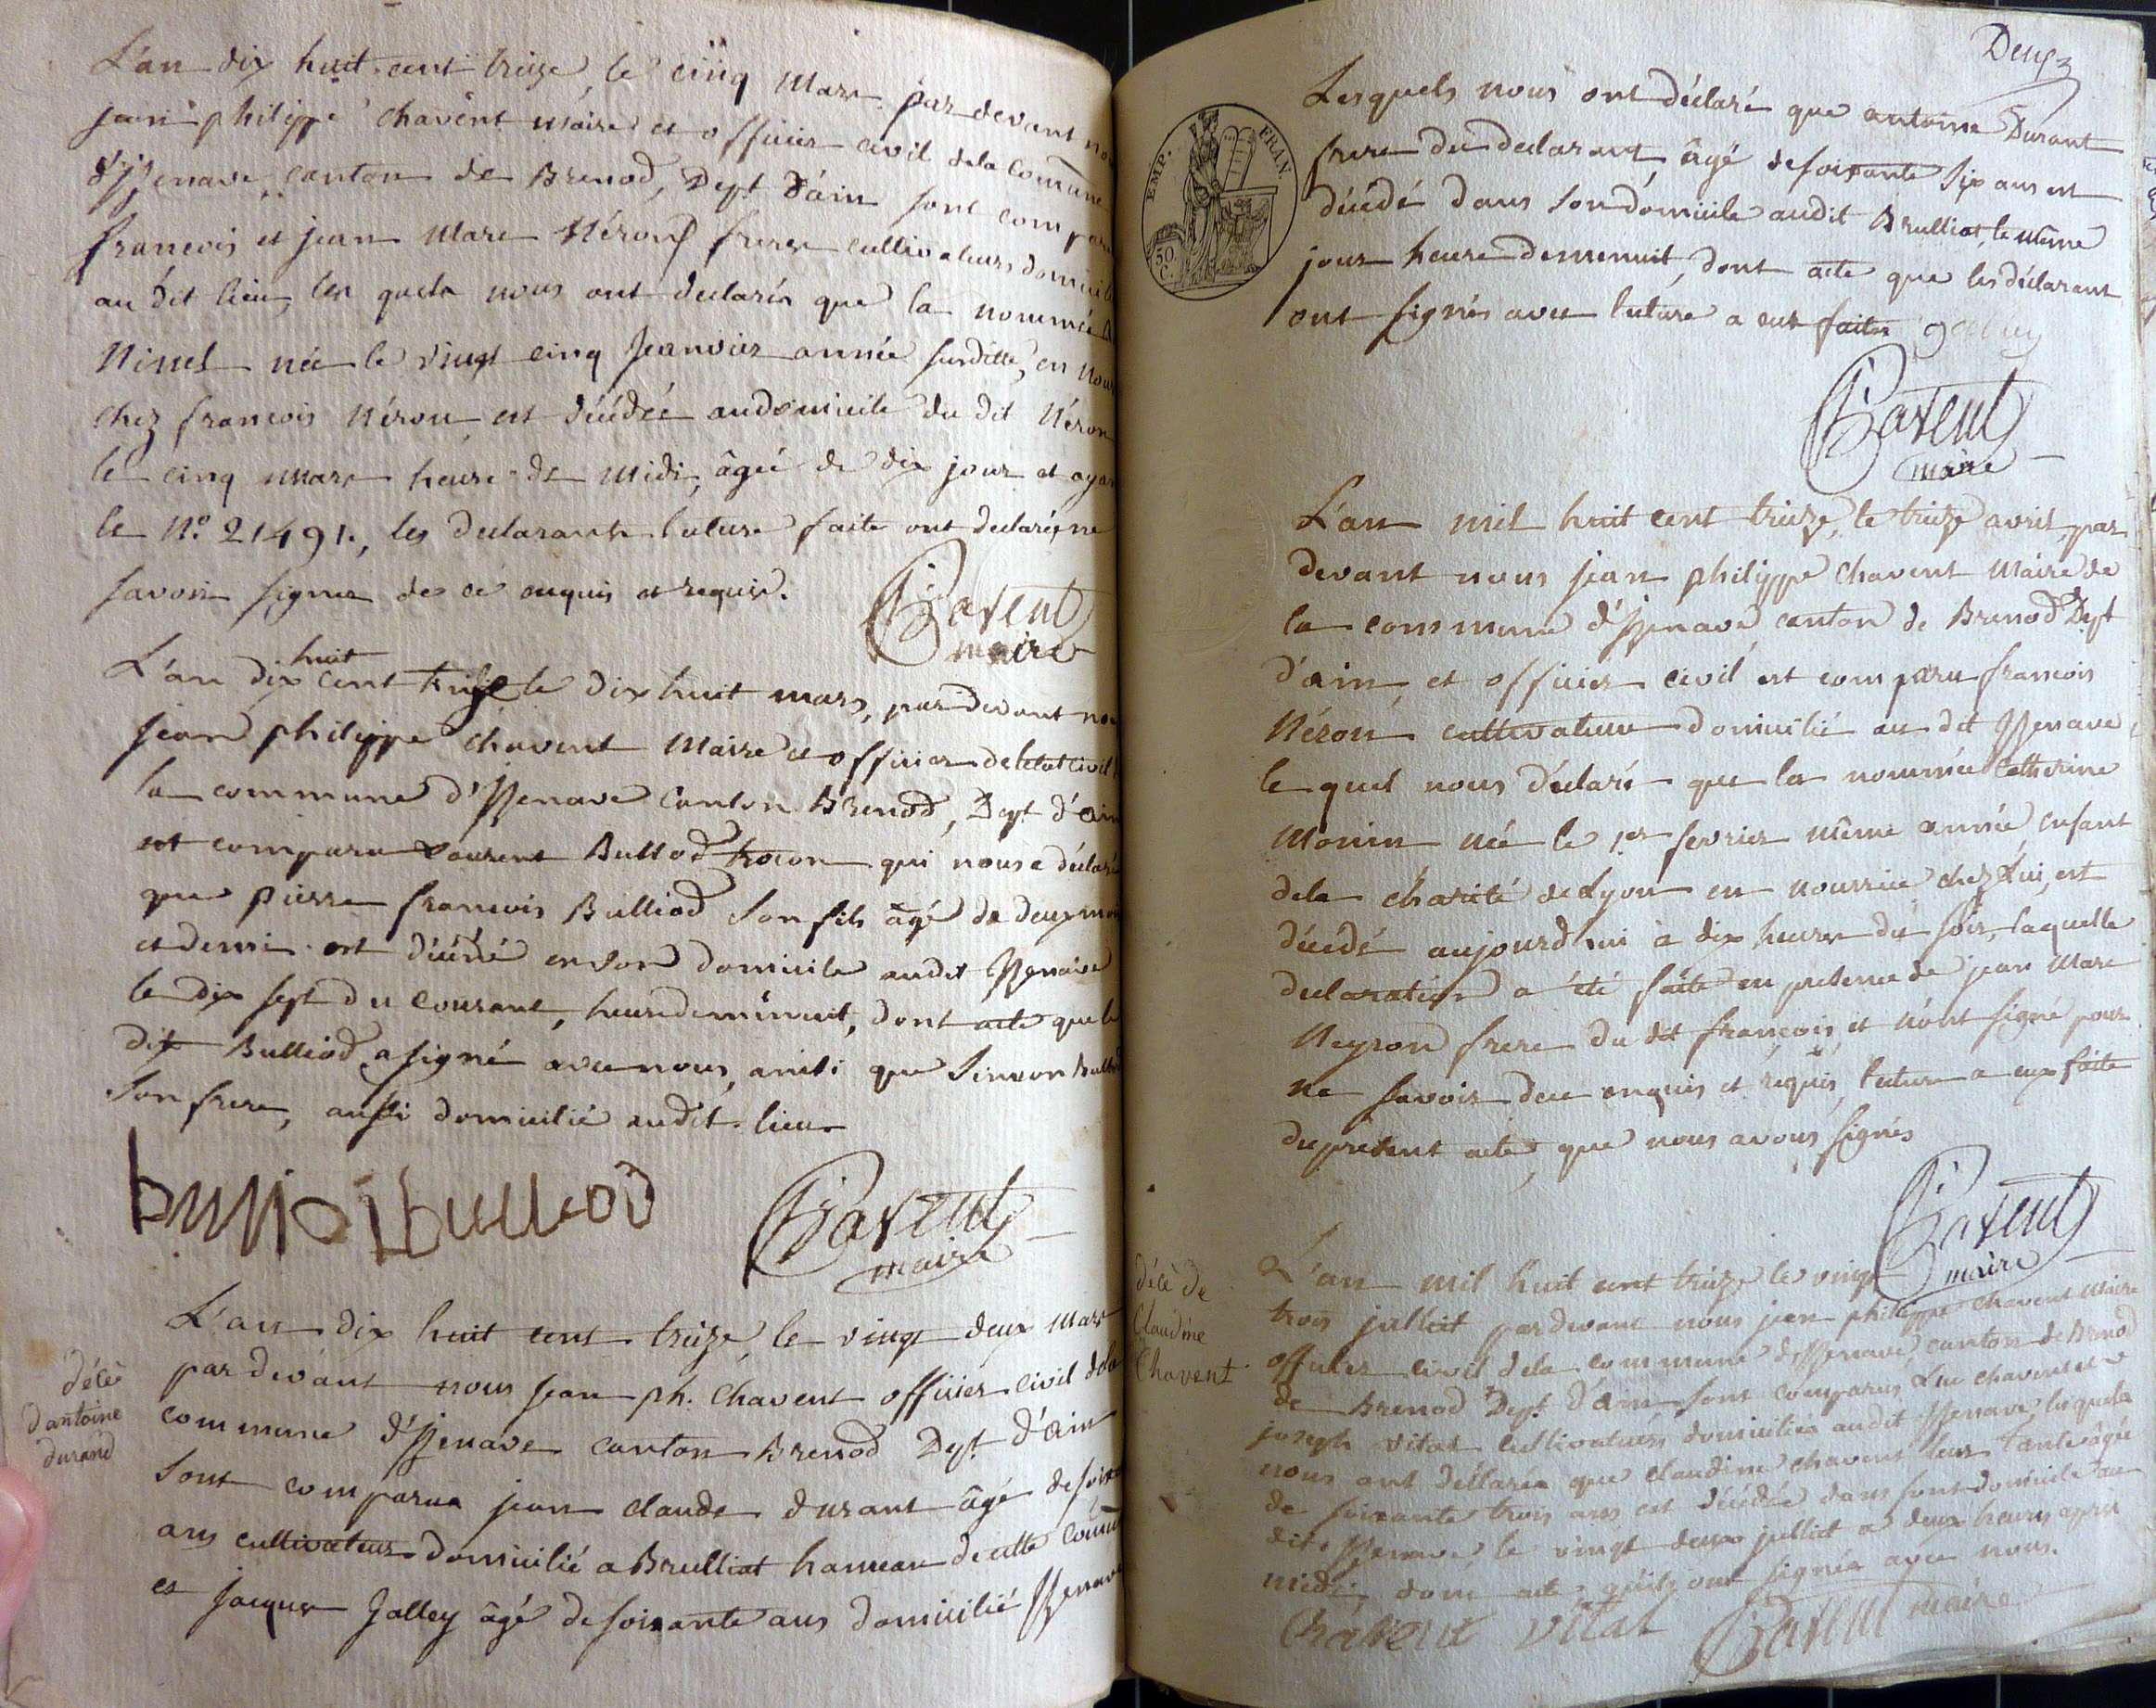 L'an dix huit cent treize, le cinq Mars par devant
jean philippe chavent maire et officier civil dela commune
d'Izenave, canton de Brenod, Dept. d'ain sont
francois et jean Marc Néron freres cultivateurs
au dit lieu, les quels nous ont declarés que la nommée
née le vingt cinq Jeanvier année surditte, en
chez francois Néron, est décédée audomicile du dit Néron
le cinq mars heure de midi, âgée de dix jour et
le No. 21491., les declarants lecture faite ont declarés ne
savoir signer de ce enquis et requis.
Chavent
maire
L'an dix huit cent treize le dix huit mars, par devant
jean philippe chavent Maire et officier deletat civil
la commune d'Izenave canton Brenod, Dept. d'ain
est comparu Laurent Bulliod qui nous a déclaré
que pierre francois Bulliod son fils âgé de deux
et demi est décédé en son domicile audit Izenave
le dix sept du courant, heure deminuit, dont acte que le
dit Bulliod a signé avec nous, ainsi que Simeon
son frere, aussi domicilié audit lieu
bulliod
Chavent
maire
décè
dantoine
durand
L'an dix huit cent treize, le vingt deux Mars
par devant nous jean ph. Chavent officier civil dela
commune d'Izenave canton Brenod Dept. d'ain
sont comparus jean claude durant âgé de
ans cultivateur domicilié a Brulliat hameau de cette
et jacques Jolley âgé de soixante ans domicilié Izenave
Deux
EMP. FRAN
50 C.
Lesquels nous ont déclaré que antoine Durant
frere du declarant, âgé de soixante six ans est
décédé dans son domicile audit Brulliat, le même
jour heure deminuit, dont acte que les déclarant
ont signés avec lecture a eux faites
Chavent
maire
L'an mil huit cent treize, le treize avril, par
devant nous jean philippe chavent Maire de
la commune d'Izenave canton de Brenod Dept
d'ain, et officier civil est comparu francois
Néron cultivateur domicilié au dit Izenave
le quel nous déclaré que la nommée Catherine
Monin née le 1er fevrier même année enfant
dela charité de Lyon en nourrice chez Lui, est
décédé aujourd'hui à dix heures du soir, laquelle
declaration a été faite en presence de jean Marc
Neyron frere du dit francois, et n'ont signé pour
ne savoir dece enquis et requis, lecture a eux faite
dupresent acte que nous avons signés
Chavent
maire
décè de
Claudine
Chavent
L'an mil huit cent treize le vingt
trois julliet pardevant nous jean philippe chavent Maire
officier civil dela commune d'Izenave canton de Brenod
de Brenod Dept. d'ain, sont comparus Luc chavent et
joseph vital cultivateurs domiciliés audit Izenave, lesquels
nous ont déclarés que claudine chavent leur tante âgée
de soixante trois ans est décédée dans sont domicile au
dit Izenave le vingt deux julliet a deux heures apres
midi, dont acte qu'ils ont signés avec nous.
Chavent vital Chavent maire